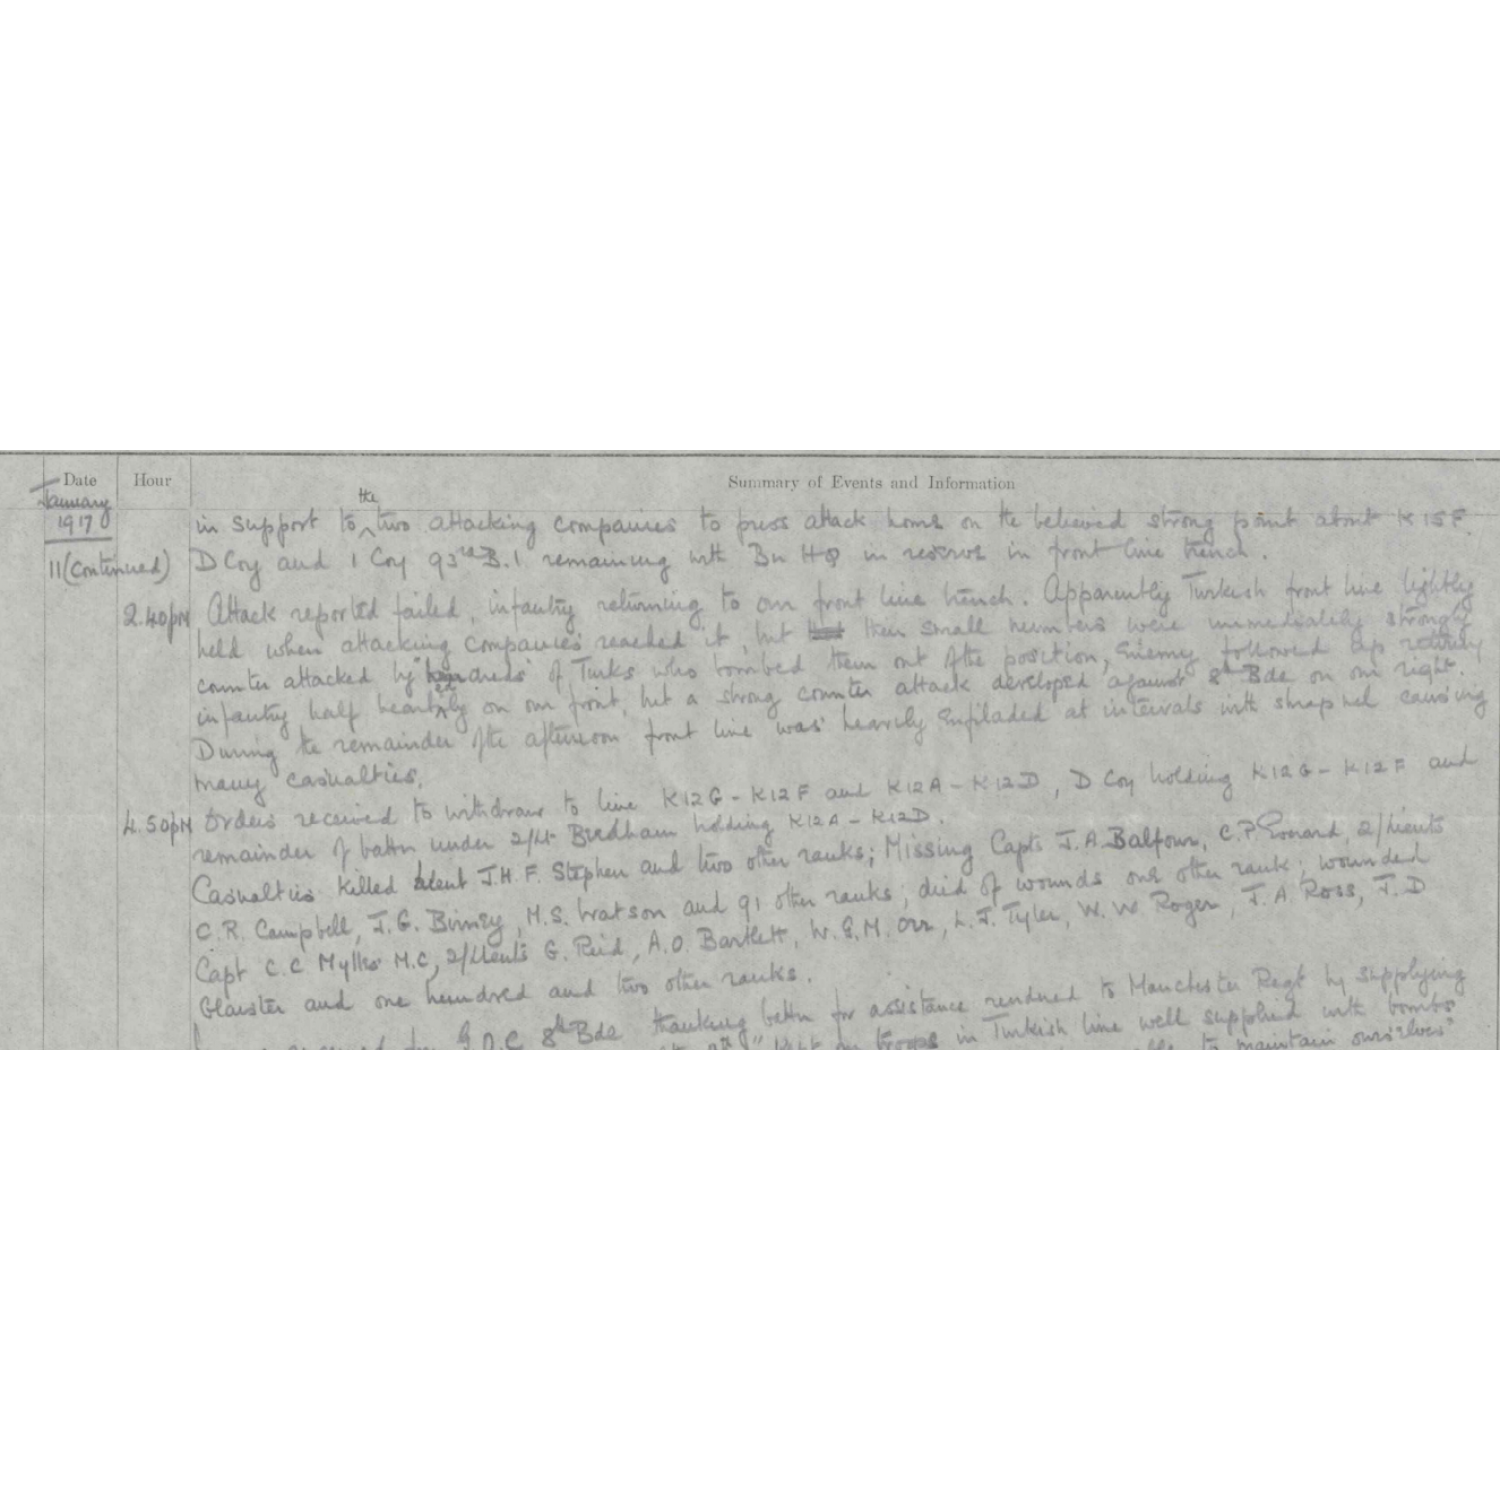 Date Hour Summary of Events and Information
January
1917
11 (continued)
in support to the two attacking companies to press attack home on the believed strong point about K15F.
D Coy and 1 Coy 93rd B.I remaining with Bn HQ in reserve in front line trench.
2.40pM Attack reported failed, infantry returning to our front line trench. Apparently Turkish front line lightly
held when attacking companies reached it, but their small numbers were immediately strongly
counter attacked by "hundreds" of Turks who bombed them out of the position, Enemy followed up retiring
infantry half heartedly on our front, but a strong counter attack developed against 8th Bde on our right.
During the remainder of the afternoon front line was heavily enfiladed at intervals with shrapnel causing
many casualties.
4.50pM Orders received to withdraw to line K12G - K12F and K12A - K12D, D Coy holding K12G - K12F and
remainder of battn under 2/Lt Bredham holding K12A - K12D.
Casualties Killed Lieut J.H.F. Stephen and two other ranks; Missing Capts J.A. Balfour, C.P. 2/Lieuts
C.R. Campbell, J.G. Binney, M.S. Watson and 91 other ranks; died of wounds one other rank; wounded
Capt C.C Mylles M.C, 2/Lieuts G. Reid, A.O. Bartlett, W.G.M. Orr, L.J. Tyler, W.W Roger, J.A Ross, J.D
Glaister and one hundred and two other ranks.
G.O.C 8th Bde thanking battn for assistance rendered to Manchester Regt by supplying
kept our troops in Turkish line well supplied with bombs
to maintain ourselves"